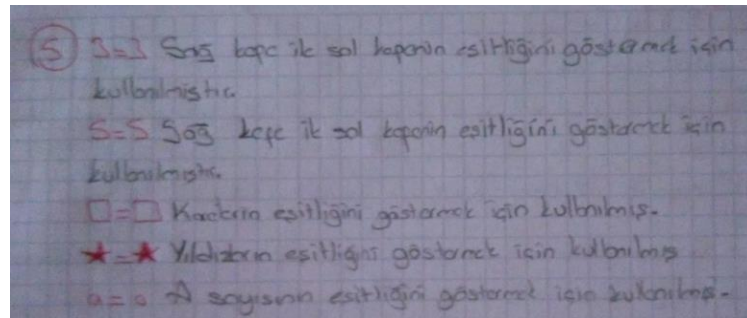 5 3=3 Sağ kefe ile sol kefenin eşitliğini göstermek için
kullanılmıştır.
5=5 Sağ kefe ile sol kefenin eşitliğini göstermek için
kullanılmıştır.
□=□ Karelerin eşitliğini göstermek için kullanılmış.
★=★ Yıldızların eşitliğini göstermek için kullanılmış
a=a A sayısının eşitliğini göstermek için kullanılmış.